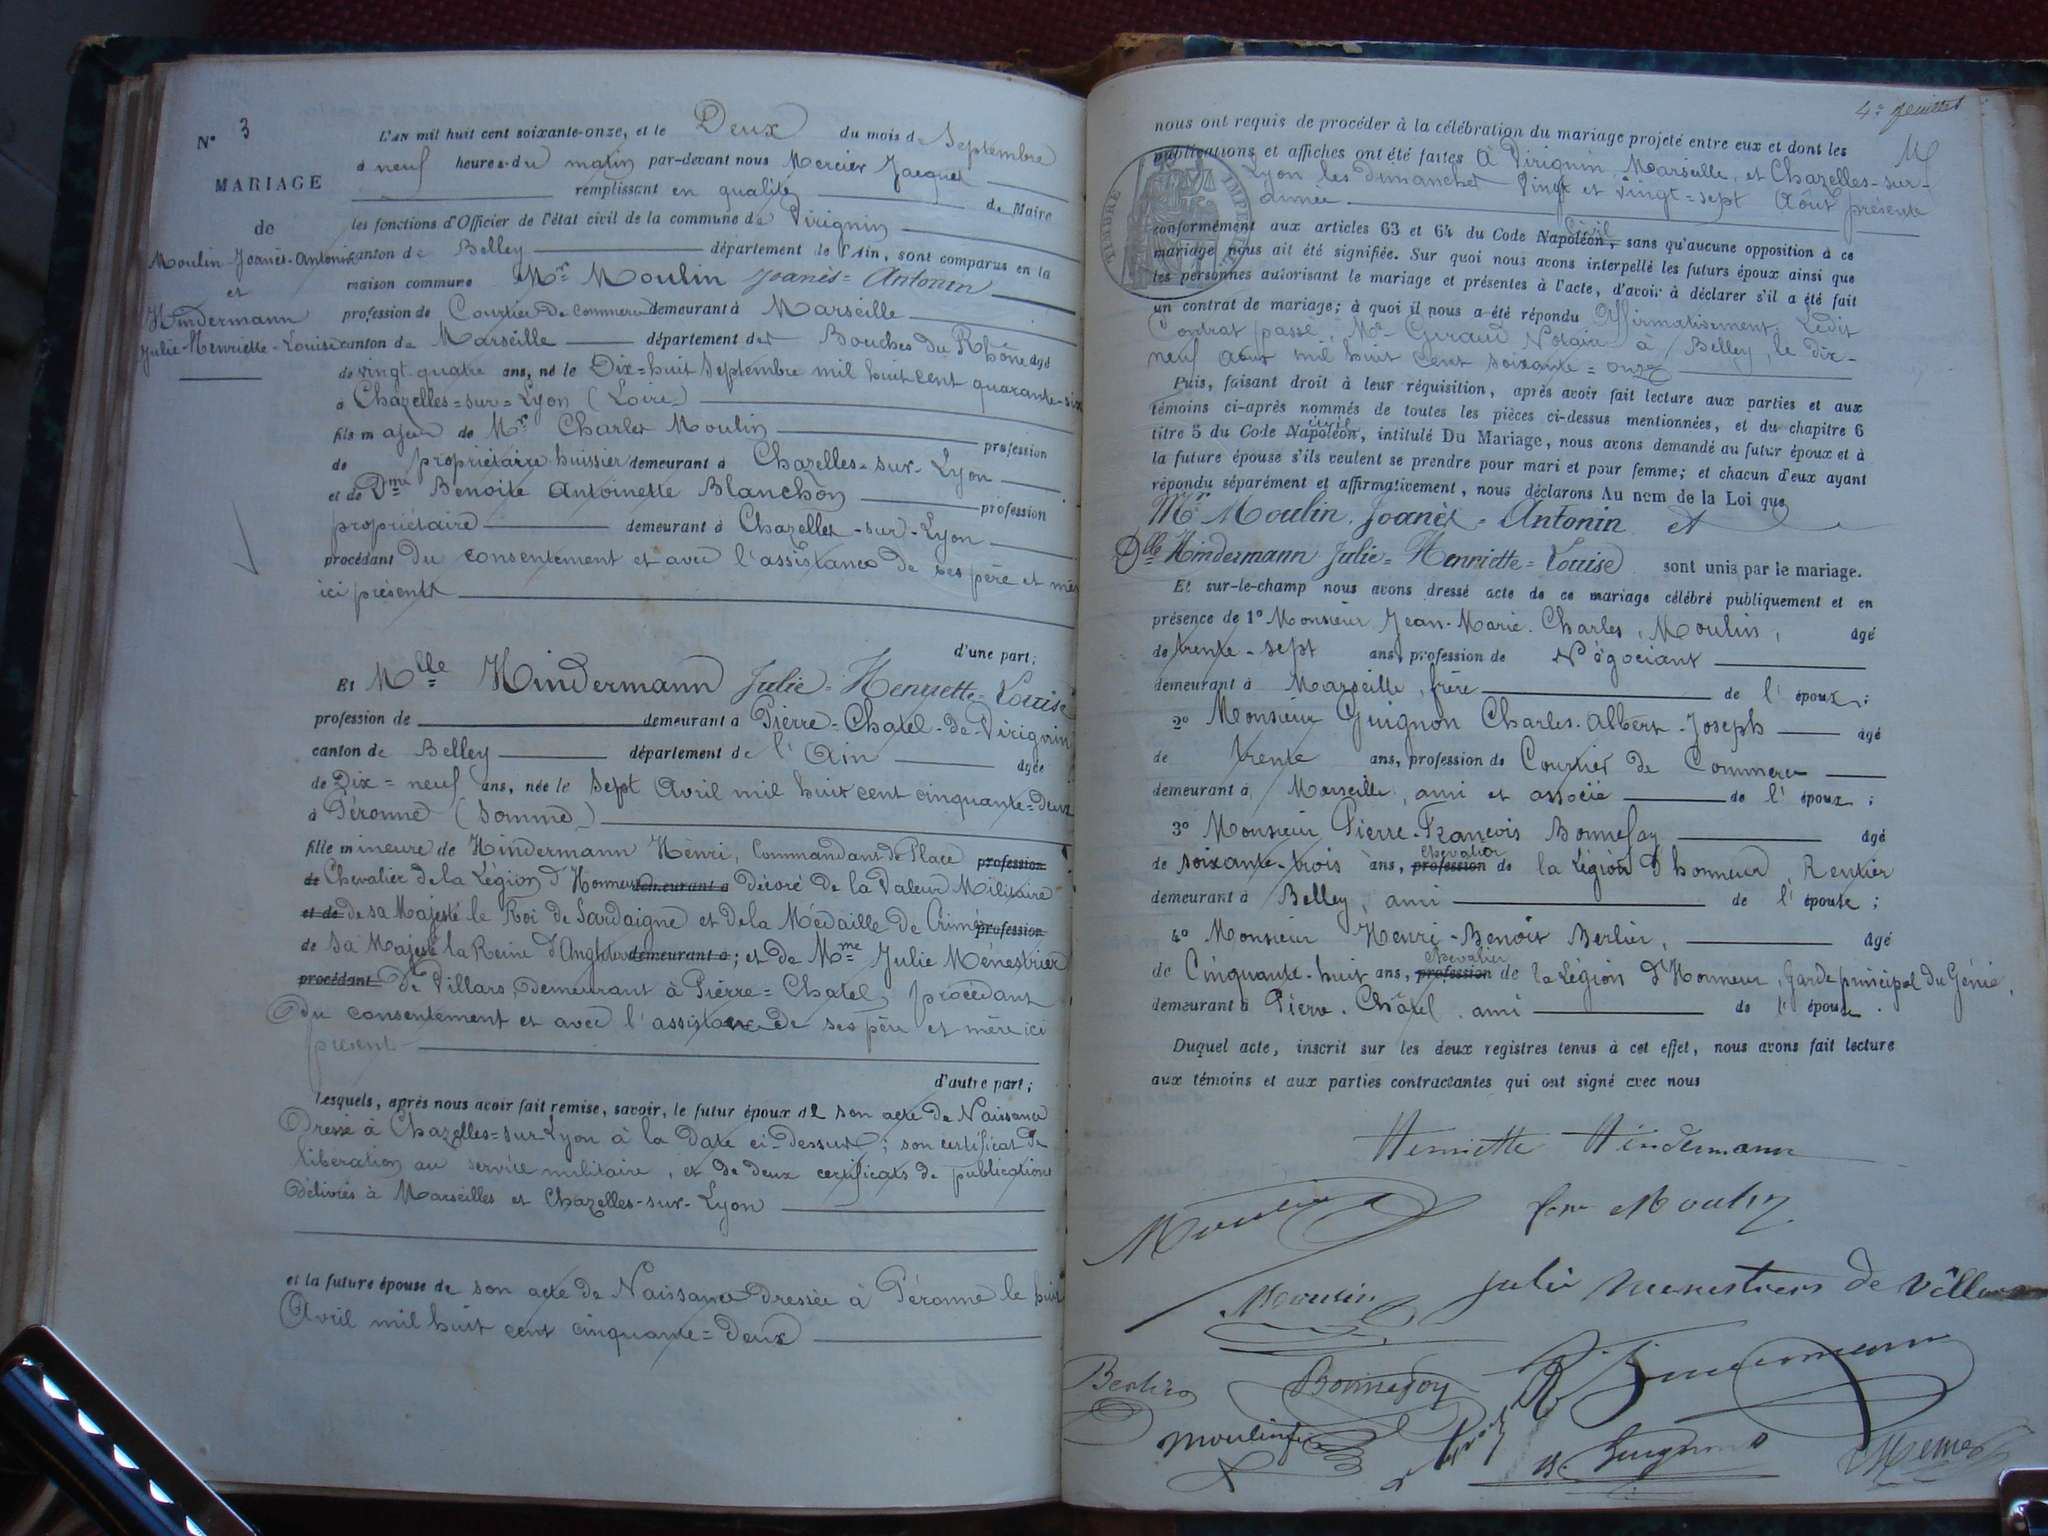 N° 3
MARIAGE
de
Moulin Joanès-Antonin
et
Hindermann
Julie-Henriette-Louise
L'AN mil huit cent soixante-onze, et le Deux du mois de Septembre
à neuf heures du matin par-devant nous Mercier Jacques
remplissant en qualité de Maire
les fonctions d'Officier de l'état civil de la commune de Virignin
canton de Belley département de l'Ain, sont comparus en la
maison commune Mr Moulin Joanès=Antonin
profession de Courtier de Commerce demeurant à Marseille
canton de Marseille département des Bouches du Rhône âgé
de vingt-quatre ans, né le Dix=huit Septembre mil huit cent quarante-six
à Chazelles=sur=Lyon (Loire)
fils majeur de Mr Charles Moulin profession
de propriétaire huissier demeurant à Chazelles-sur-Lyon
et de Dme Benoite Antoinette Blanchon profession
propriétaire demeurant à Chazelles-sur-Lyon
procédant du consentement et avec l'assistance de ses père et mère
ici présents
d'une part;
Et Mlle Hindermann Julie=Henriette=Louise
profession de demeurant à Pierre=Chatel-de-Virignin
canton de Belley département de l'Ain âgée
de Dix=neuf ans, née le Sept Avril mil huit cent cinquante=deux
à Péronne (Somme)
fille mineure de Hindermann Henri, Commandant de Place profession
de Chevalier de la Légion d'Honneur demeurant à Décoré de la Valeur Militaire
et de de sa Majesté le Roi de Sardaigne et de la Médaille de Crimée profession
de Sa Majesté la Reine d'Angleterre demeurant à; et de Mme Julie Ménestrier
procédant de Villars, demeurant à Pierre=Chatel, procédant
du consentement et avec l'assistance de ses père et mère ici
présent
d'autre part;
Lesquels, après nous avoir fait remise, savoir, le futur époux de son acte de Naissance
Dressé à Chazelles=sur-Lyon à la Date ci-Dessus; son certificat de
libération au service militaire, et de deux certificats de publications
délivrés à Marseilles et Chazelles-sur-Lyon
et la future épouse de son acte de Naissance Dressée à Péronne le huit
Avril mil huit cent cinquante=deux
4e feuillet
nous ont requis de procéder à la célébration du mariage projeté entre eux et dont les
publications et affiches ont été faites à Virignin, Marseille, et Chazelles-sur-
Lyon les dimanches Vingt et Vingt=sept Août présente
année
TIMBRE IMPE
conformément aux articles 63 et 64 du Code Napoléon, Civil sans qu'aucune opposition à ce
mariage nous ait été signifiée. Sur quoi nous avons interpellé les futurs époux ainsi que
les personnes autorisant le mariage et présentes à l'acte, d'avoir à déclarer s'il a été fait
un contrat de mariage; à quoi il nous a été répondu Affirmativement. Ledit
Contrat passé, Me Giraud Notaire à Belley, le dix-
neuf aout mil huit cent soixante=onze
Puis, faisant droit à leur réquisition, après avoir fait lecture aux parties et aux
témoins ci-après nommés de toutes les pièces ci-dessus mentionnées, et du chapitre 6
titre 5 du Code Napoléon, civil intitulé Du Mariage, nous avons demandé au futur époux et à
la future épouse s'ils veulent se prendre pour mari et pour femme; et chacun d'eux ayant
répondu séparément et affirmativement, nous déclarons Au nom de la Loi que
Mr Moulin. Joanès=Antonin et
Dlle Hindermann Julie=Henriette=Louise sont unis par le mariage.
Et sur-le-champ nous avons dressé acte de ce mariage célébré publiquement et en
présence de 1° Monsieur Jean-Marie-Charles, Moulin, âgé
de trente-sept ans, profession de Négociant
demeurant à Marseille, frère de l'époux;
2° Monsieur Guignon Charles-Albert-Joseph âgé
de trente ans, profession de Courtier de Commerce
demeurant à Marseille, ami et associé de l'époux;
3° Monsieur Pierre-François Bonnefoy âgé
de soixante-trois ans, profession Chevalier de la Légion d'honneur, Rentier
demeurant à Belley, ami de l'épouse;
4° Monsieur Henri-Benoit Berlier, âgé
de Cinquante-huit ans, profession Chevalier de la Légion d'Honneur, garde principal du Génie,
demeurant à Pierre-Châtel, ami de l'épouse.
Duquel acte, inscrit sur les deux registres tenus à cet effet, nous avons fait lecture
aux témoins et aux parties contractantes qui ont signé avec nous
Henriette Hindermann
Moulin
Moulin
Julie Menestrier de Villars
Berlier
Bonnefoy